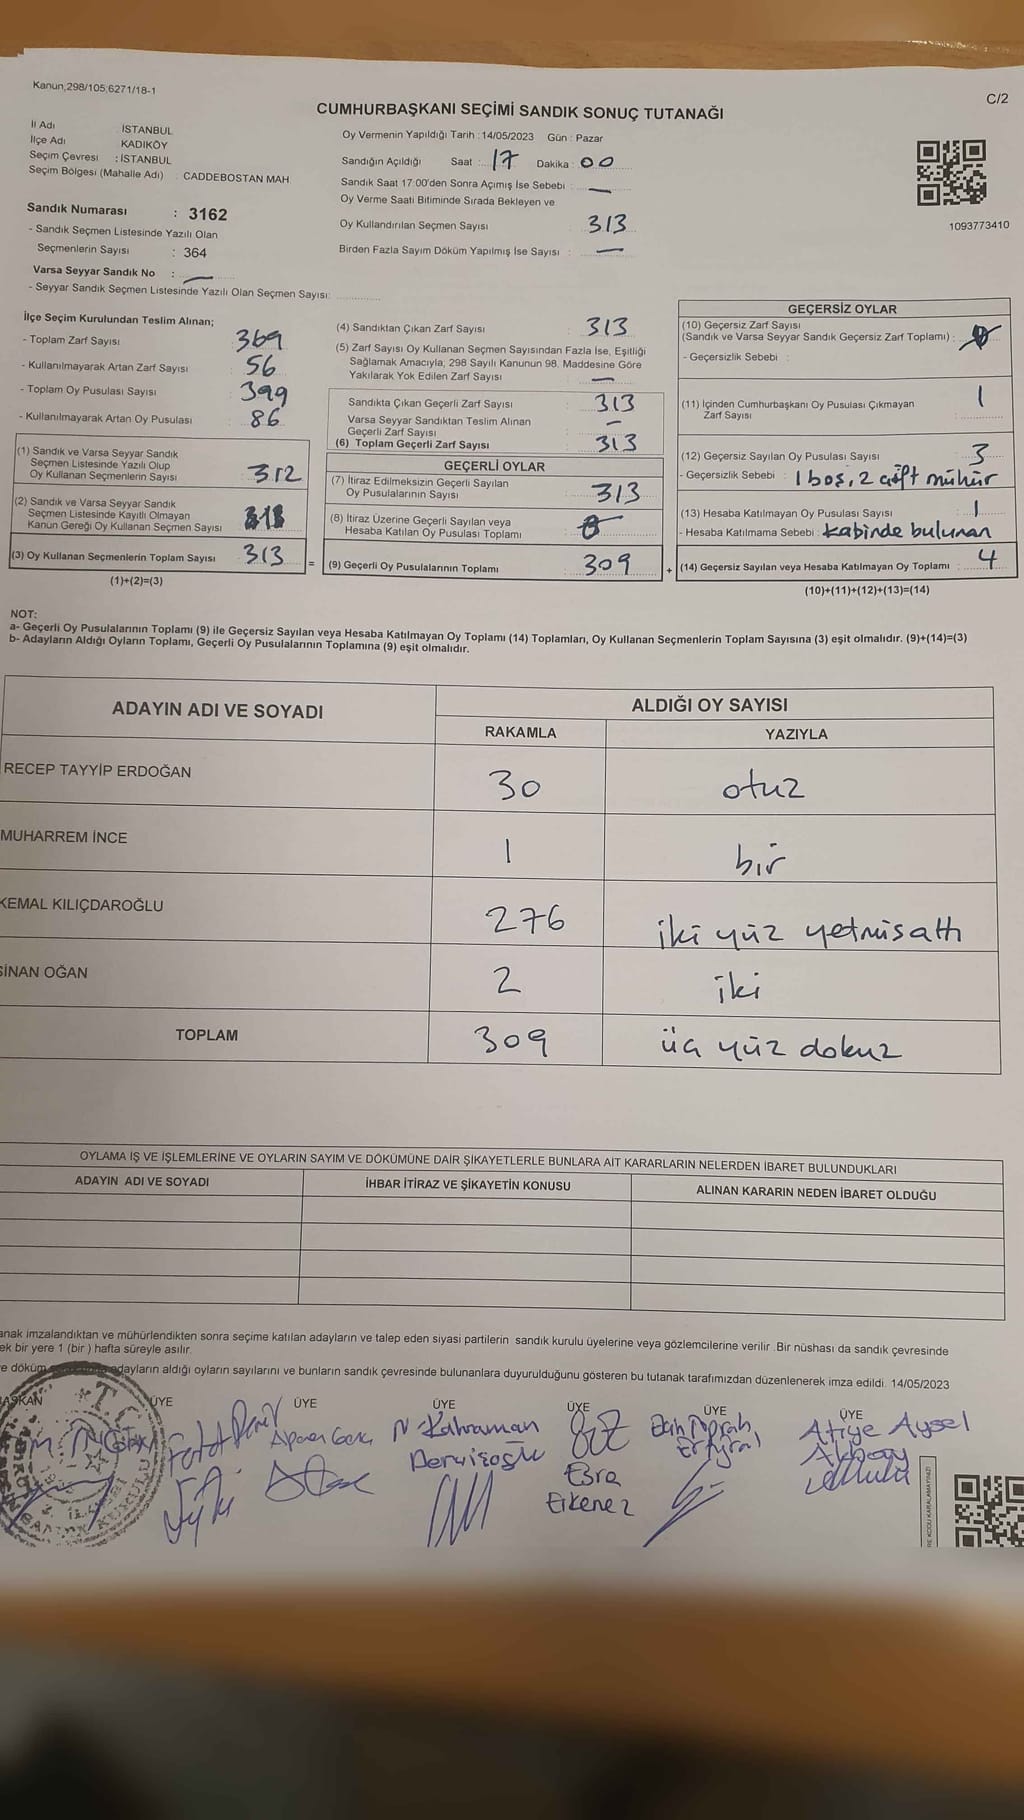 Kanun,298/105,6271/18-1
C/2
CUMHURBAŞKANI SEÇİMİ SANDIK SONUÇ TUTANAĞI
İl Adı : İSTANBUL
İlçe Adı : KADIKÖY
Seçim Çevresi : İSTANBUL
Seçim Bölgesi (Mahalle Adı) : CADDEBOSTAN MAH.
Sandık Numarası : 3162
- Sandık Seçmen Listesinde Yazılı Olan
Seçmenlerin Sayısı : 364
Varsa Seyyar Sandık No : —
- Seyyar Sandık Seçmen Listesinde Yazılı Olan Seçmen Sayısı:
Oy Vermenin Yapıldığı Tarih : 14/05/2023 Gün : Pazar
Sandığın Açıldığı Saat : 17 Dakika : 00
Sandık Saat 17:00'den Sonra Açımış İse Sebebi : —
Oy Verme Saati Bitiminde Sırada Bekleyen ve
Oy Kullandırılan Seçmen Sayısı : 313
Birden Fazla Sayım Döküm Yapılmış İse Sayısı : —
1093773410
İlçe Seçim Kurulundan Teslim Alınan;
- Toplam Zarf Sayısı : 369
- Kullanılmayarak Artan Zarf Sayısı : 56
- Toplam Oy Pusulası Sayısı : 399
- Kullanılmayarak Artan Oy Pusulası : 86
(1) Sandık ve Varsa Seyyar Sandık
Seçmen Listesinde Yazılı Olup
Oy Kullanan Seçmenlerin Sayısı : 312
(2) Sandık ve Varsa Seyyar Sandık
Seçmen Listesinde Kayıtlı Olmayan
Kanun Gereği Oy Kullanan Seçmen Sayısı
(3) Oy Kullanan Seçmenlerin Toplam Sayısı : 313
(1)+(2)=(3)
=
(4) Sandıktan Çıkan Zarf Sayısı : 313
(5) Zarf Sayısı Oy Kullanan Seçmen Sayısından Fazla İse, Eşitliği
Sağlamak Amacıyla, 298 Sayılı Kanunun 98. Maddesine Göre
Yakılarak Yok Edilen Zarf Sayısı : —
Sandıkta Çıkan Geçerli Zarf Sayısı : 313
Varsa Seyyar Sandıktan Teslim Alınan
Geçerli Zarf Sayısı : —
(6) Toplam Geçerli Zarf Sayısı : 313
GEÇERLİ OYLAR
(7) İtiraz Edilmeksizin Geçerli Sayılan
Oy Pusulalarının Sayısı : 313
(8) İtiraz Üzerine Geçerli Sayılan veya
Hesaba Katılan Oy Pusulası Toplamı
(9) Geçerli Oy Pusulalarının Toplamı : 309
+
GEÇERSİZ OYLAR
(10) Geçersiz Zarf Sayısı
(Sandık ve Varsa Seyyar Sandık Geçersiz Zarf Toplamı) :
- Geçersizlik Sebebi :
(11) İçinden Cumhurbaşkanı Oy Pusulası Çıkmayan
Zarf Sayısı : 1
(12) Geçersiz Sayılan Oy Pusulası Sayısı : 3
- Geçersizlik Sebebi : 1 boş, 2 çift mühür
(13) Hesaba Katılmayan Oy Pusulası Sayısı : 1
- Hesaba Katılmama Sebebi : kabinde bulunan
(14) Geçersiz Sayılan veya Hesaba Katılmayan Oy Toplamı : 4
(10)+(11)+(12)+(13)=(14)
NOT:
a- Geçerli Oy Pusulalarının Toplamı (9) ile Geçersiz Sayılan veya Hesaba Katılmayan Oy Toplamı (14) Toplamları, Oy Kullanan Seçmenlerin Toplam Sayısına (3) eşit olmalıdır. (9)+(14)=(3)
b- Adayların Aldığı Oyların Toplamı, Geçerli Oy Pusulalarının Toplamına (9) eşit olmalıdır.
ADAYIN ADI VE SOYADI ALDIĞI OY SAYISI
RAKAMLA YAZIYLA
RECEP TAYYİP ERDOĞAN 30 otuz
MUHARREM İNCE 1 bir
KEMAL KILIÇDAROĞLU 276 iki yüz yetmiş altı
SİNAN OĞAN 2 iki
TOPLAM 309 üç yüz dokuz
OYLAMA İŞ VE İŞLEMLERİNE VE OYLARIN SAYIM VE DÖKÜMÜNE DAİR ŞİKAYETLERLE BUNLARA AİT KARARLARIN NELERDEN İBARET BULUNDUKLARI
ADAYIN ADI VE SOYADI İHBAR İTİRAZ VE ŞİKAYETİN KONUSU ALINAN KARARIN NEDEN İBARET OLDUĞU
anak imzalandıktan ve mühürlendikten sonra seçime katılan adayların ve talep eden siyasi partilerin sandık kurulu üyelerine veya gözlemcilerine verilir .Bir nüshası da sandık çevresinde
ek bir yere 1 (bir ) hafta süreyle asılır.
e döküm adayların aldığı oyların sayılarını ve bunların sandık çevresinde bulunanlara duyurulduğunu gösteren bu tutanak tarafımızdan düzenlenerek imza edildi. 14/05/2023
BAŞKAN ÜYE ÜYE ÜYE ÜYE ÜYE ÜYE
N Kahraman
Dervişoğlu
Esra
Erkenez
Atiye Aysel
T.C.